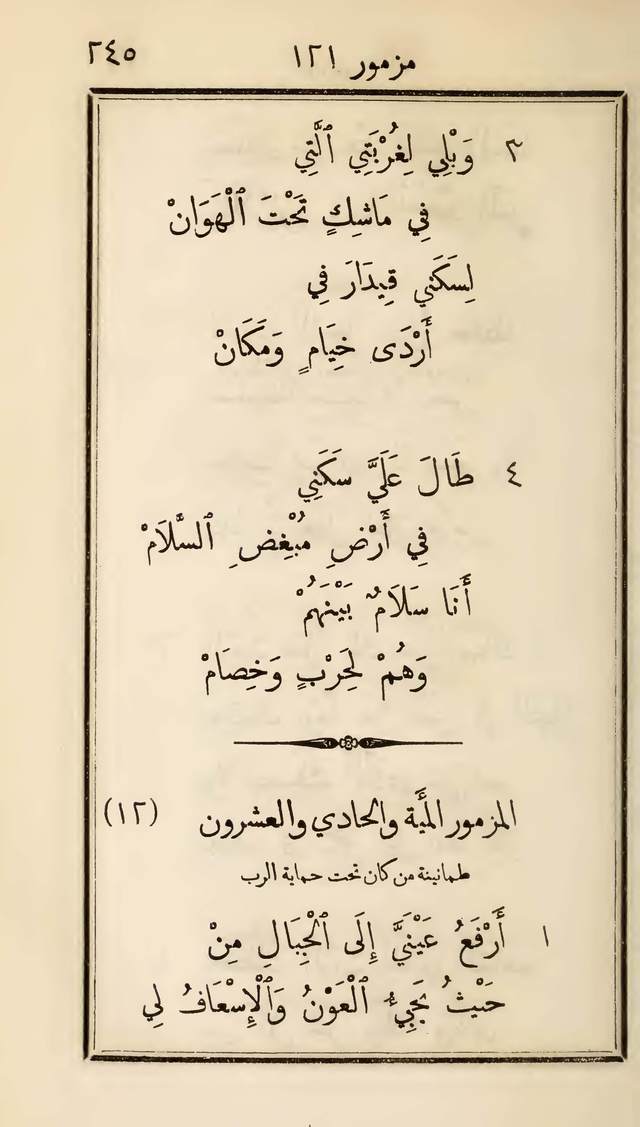 مزمور ١٢١ ٢٤٥
٣ وَيْلِي لِغُرْبَتِي ٱلَّتِي
فِي مَاشِكٍ تَحْتَ ٱلْهَوَانْ
لِسَكَنِي قِيدَارَ فِي
أَرْدَى خِيَامٍ وَمَكَانْ
٤ طَالَ عَلَيَّ سَكَنِي
فِي أَرْضِ مُبْغِضِ ٱلسَّلَامْ
أَنَا سَلَامٌ بَيْنَهُمْ
وَهُمْ لِحَرْبٍ وَخِصَامْ
المزمور المئَة والحادي والعشرون (١٢)
طمانينة من كان تحت حماية الرب
١ أَرْفَعُ عَيْنَيَّ إِلَى ٱلْجِبَالِ مِنْ
حَيْثُ يَجِيءُ ٱلْعَوْنُ وَٱلْإِسْعَافُ لِي